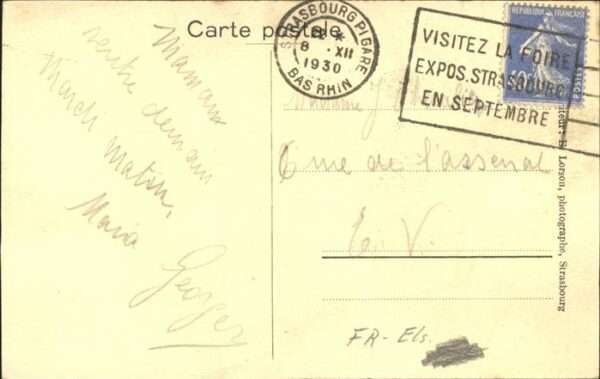 Carte postale
STRASBOURG PL GARE
12 *
8 . XII
1930
BAS RHIN
VISITEZ LA FOIRE
EXPOS. STRASBOURG
EN SEPTEMBRE
REPUBLIQUE FRANÇAISE
POSTES
Maman
rentre demain
Mardi matin,
Maria
Georges
Madame
6 rue de l'assenal
En V.
FR - Els.
Lorson, photographe, Strasbourg